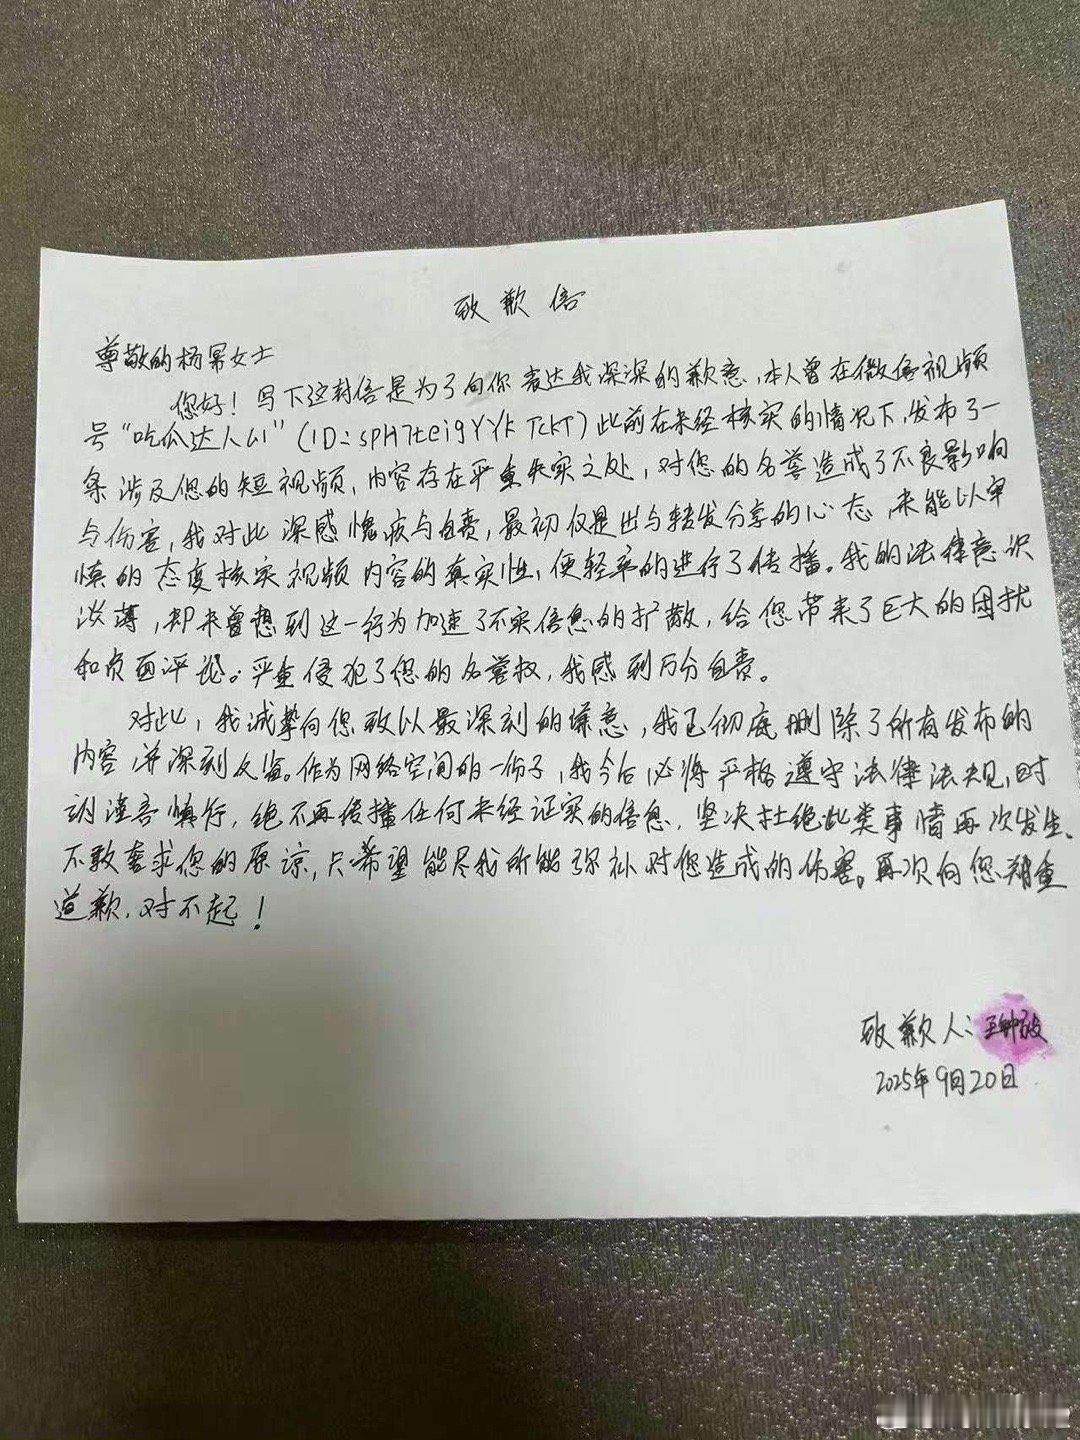 致歉信
尊敬的杨幂女士
您好！写下这封信是为了向你表达我深深的歉意，本人曾在微信视频
号“吃瓜达人山”（ID：spH7tei9YYkTckT）此前在未经核实的情况下，发布了一
条涉及您的短视频，内容存在严重失实之处，对您的名誉造成了不良影响
与伤害，我对此深感愧疚与自责，最初仅是出与转发分享的心态，未能以审
慎的态度核实视频内容的真实性，便轻率的进行了传播。我的法律意识
淡薄，却未曾想到这一行为加速了不实信息的扩散，给您带来了巨大的困扰
和负面评论。严重侵犯了您的名誉权，我感到万分自责。
对此，我诚挚向您致以最深刻的歉意，我已彻底删除了所有发布的
内容，并深刻反省。作为网络空间的一份子，我今后必将严格遵守法律法规，时
刻谨言慎行，绝不再传播任何未经证实的信息，坚决杜绝此类事情再次发生。
不敢奢求您的原谅，只希望能尽我所能弥补对您造成的伤害。再次向您郑重
道歉，对不起！
致歉人：
2025年9月20日